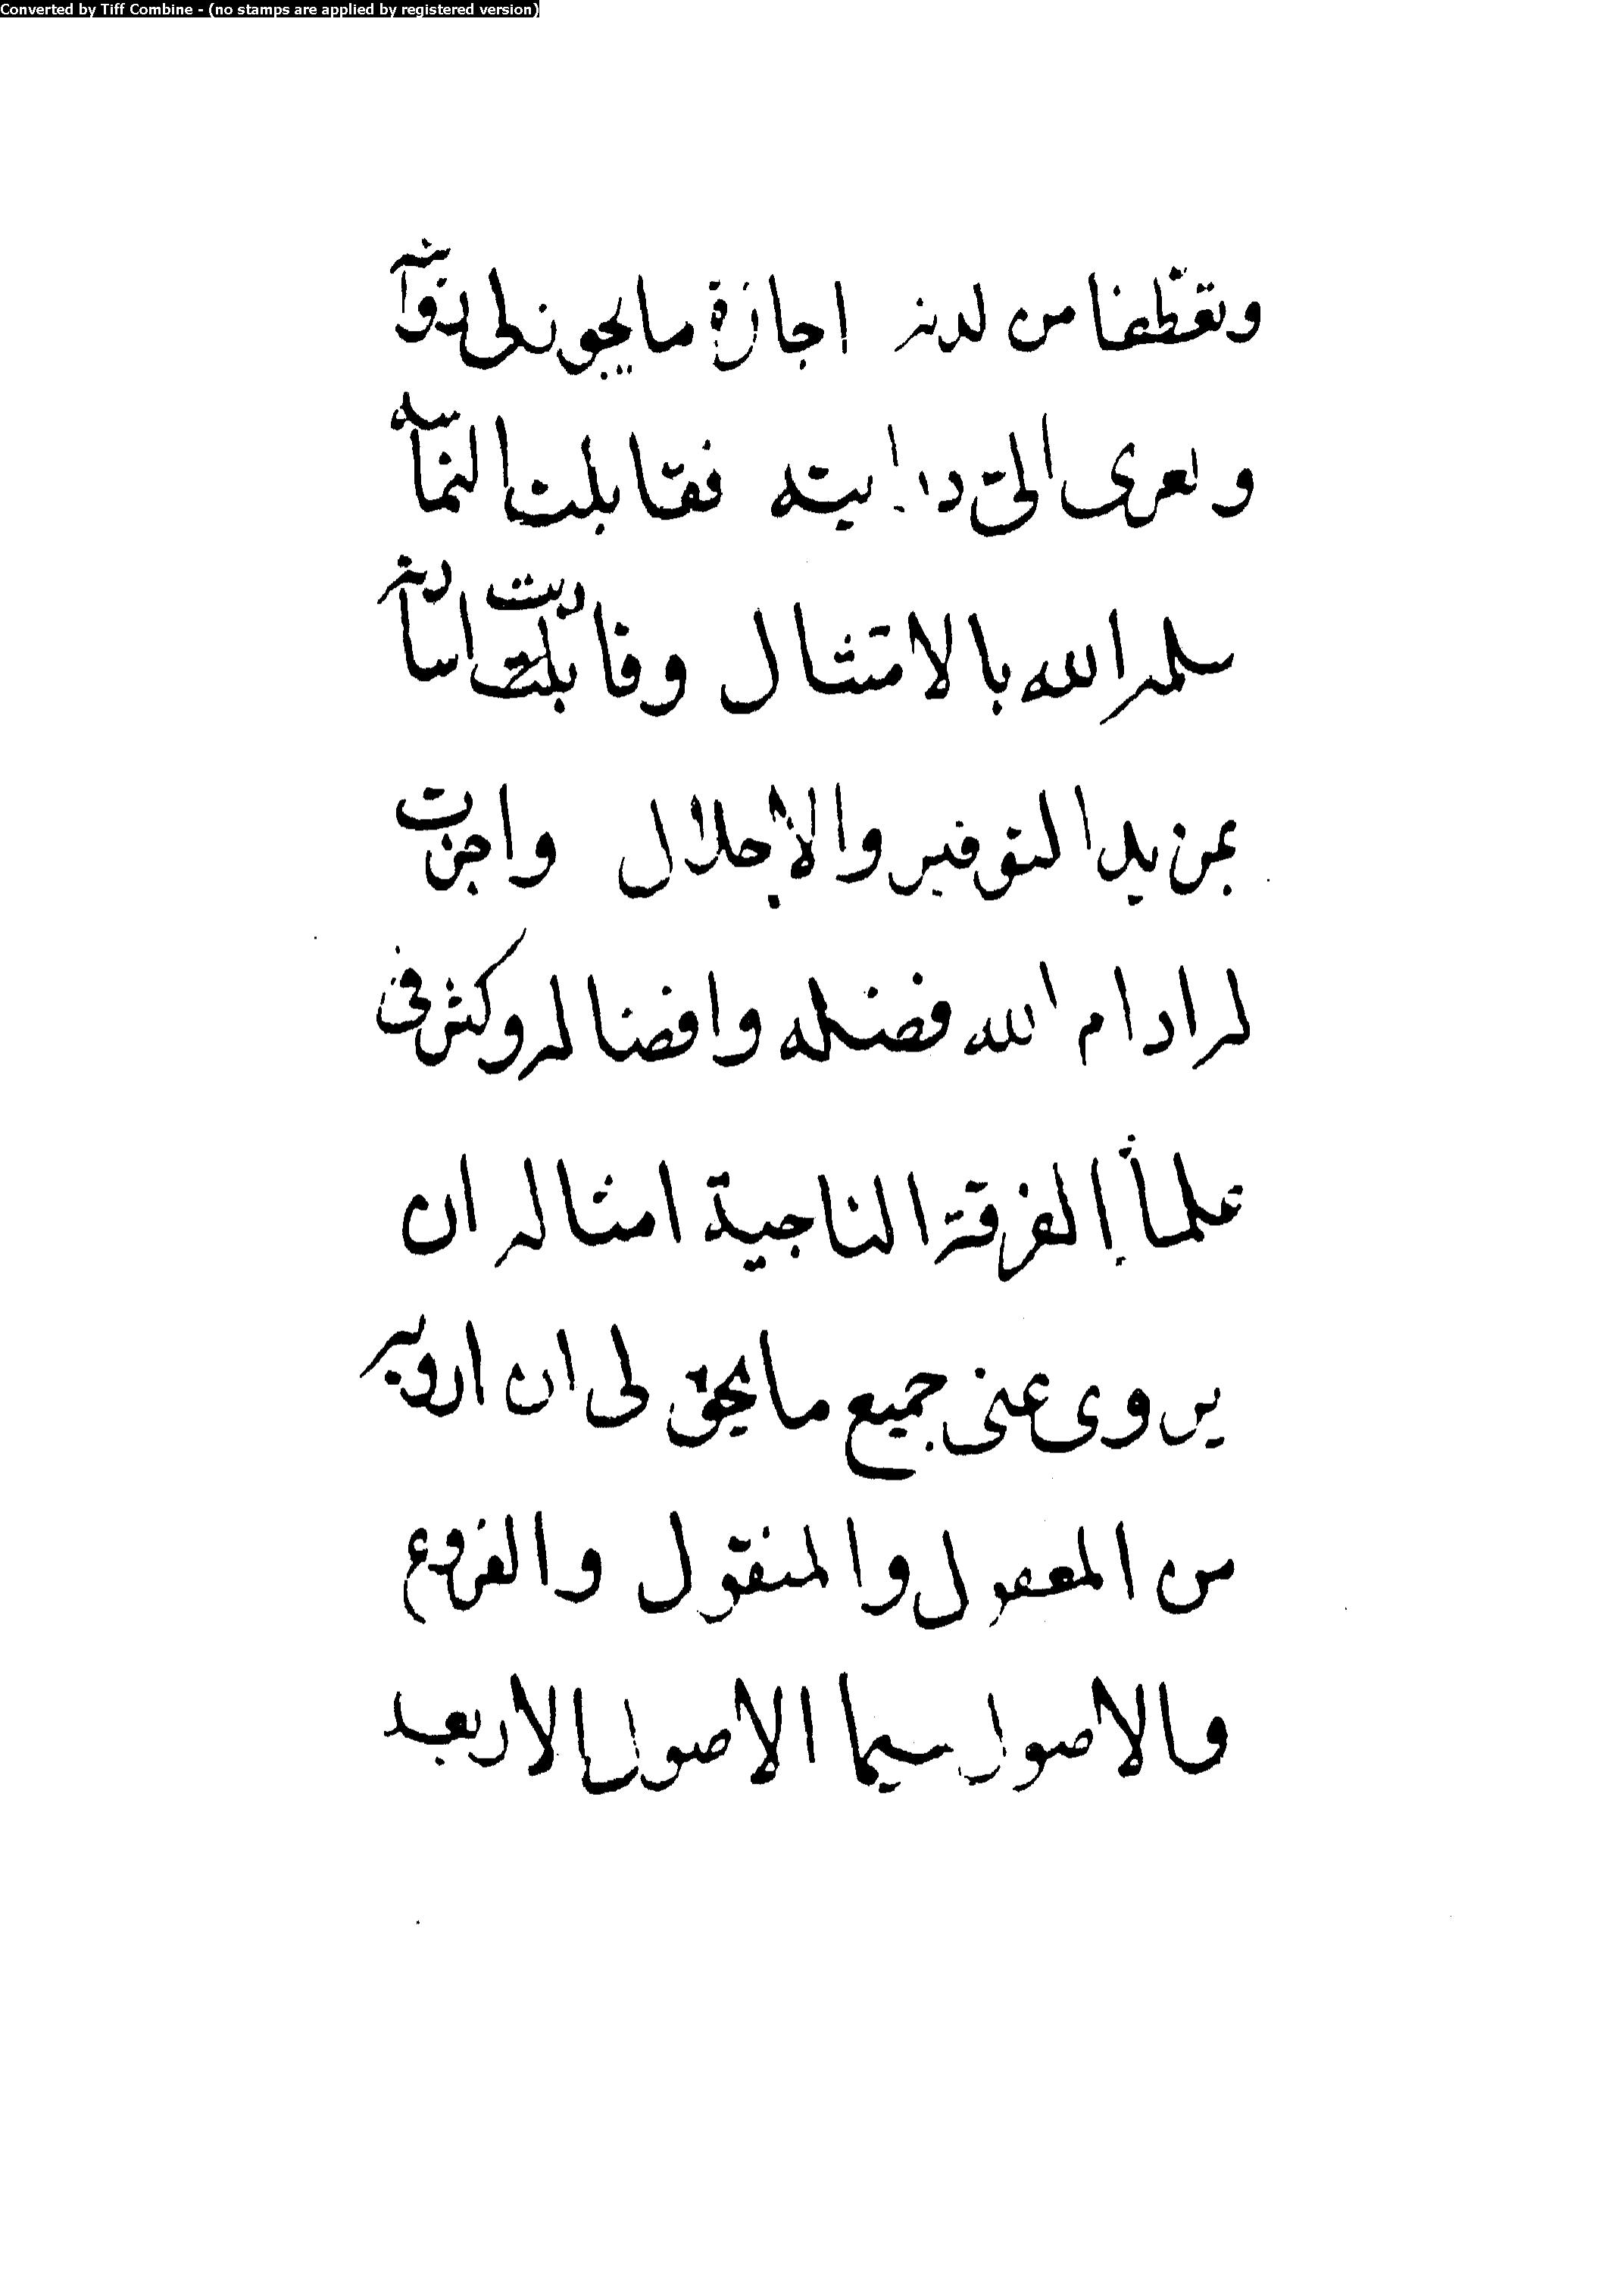 Converted by Tiff Combine - (no stamps are applied by registered version)
وتعطفا من لدنه اجازة ما يجوز لى
و الى فقابلت التماسه
سلمه الله بالامتثال وقابلت
بمزيد التوقير والاجلال واجزت
له ادام الله فضله وافضاله وكثر فى
علمأ الفرقة الناجية امثاله ان
يروى عنى جميع ما يحق لى ان ارويه
من المعقول والمنقول والفروع
والاصول سيما الاصول الاربعه